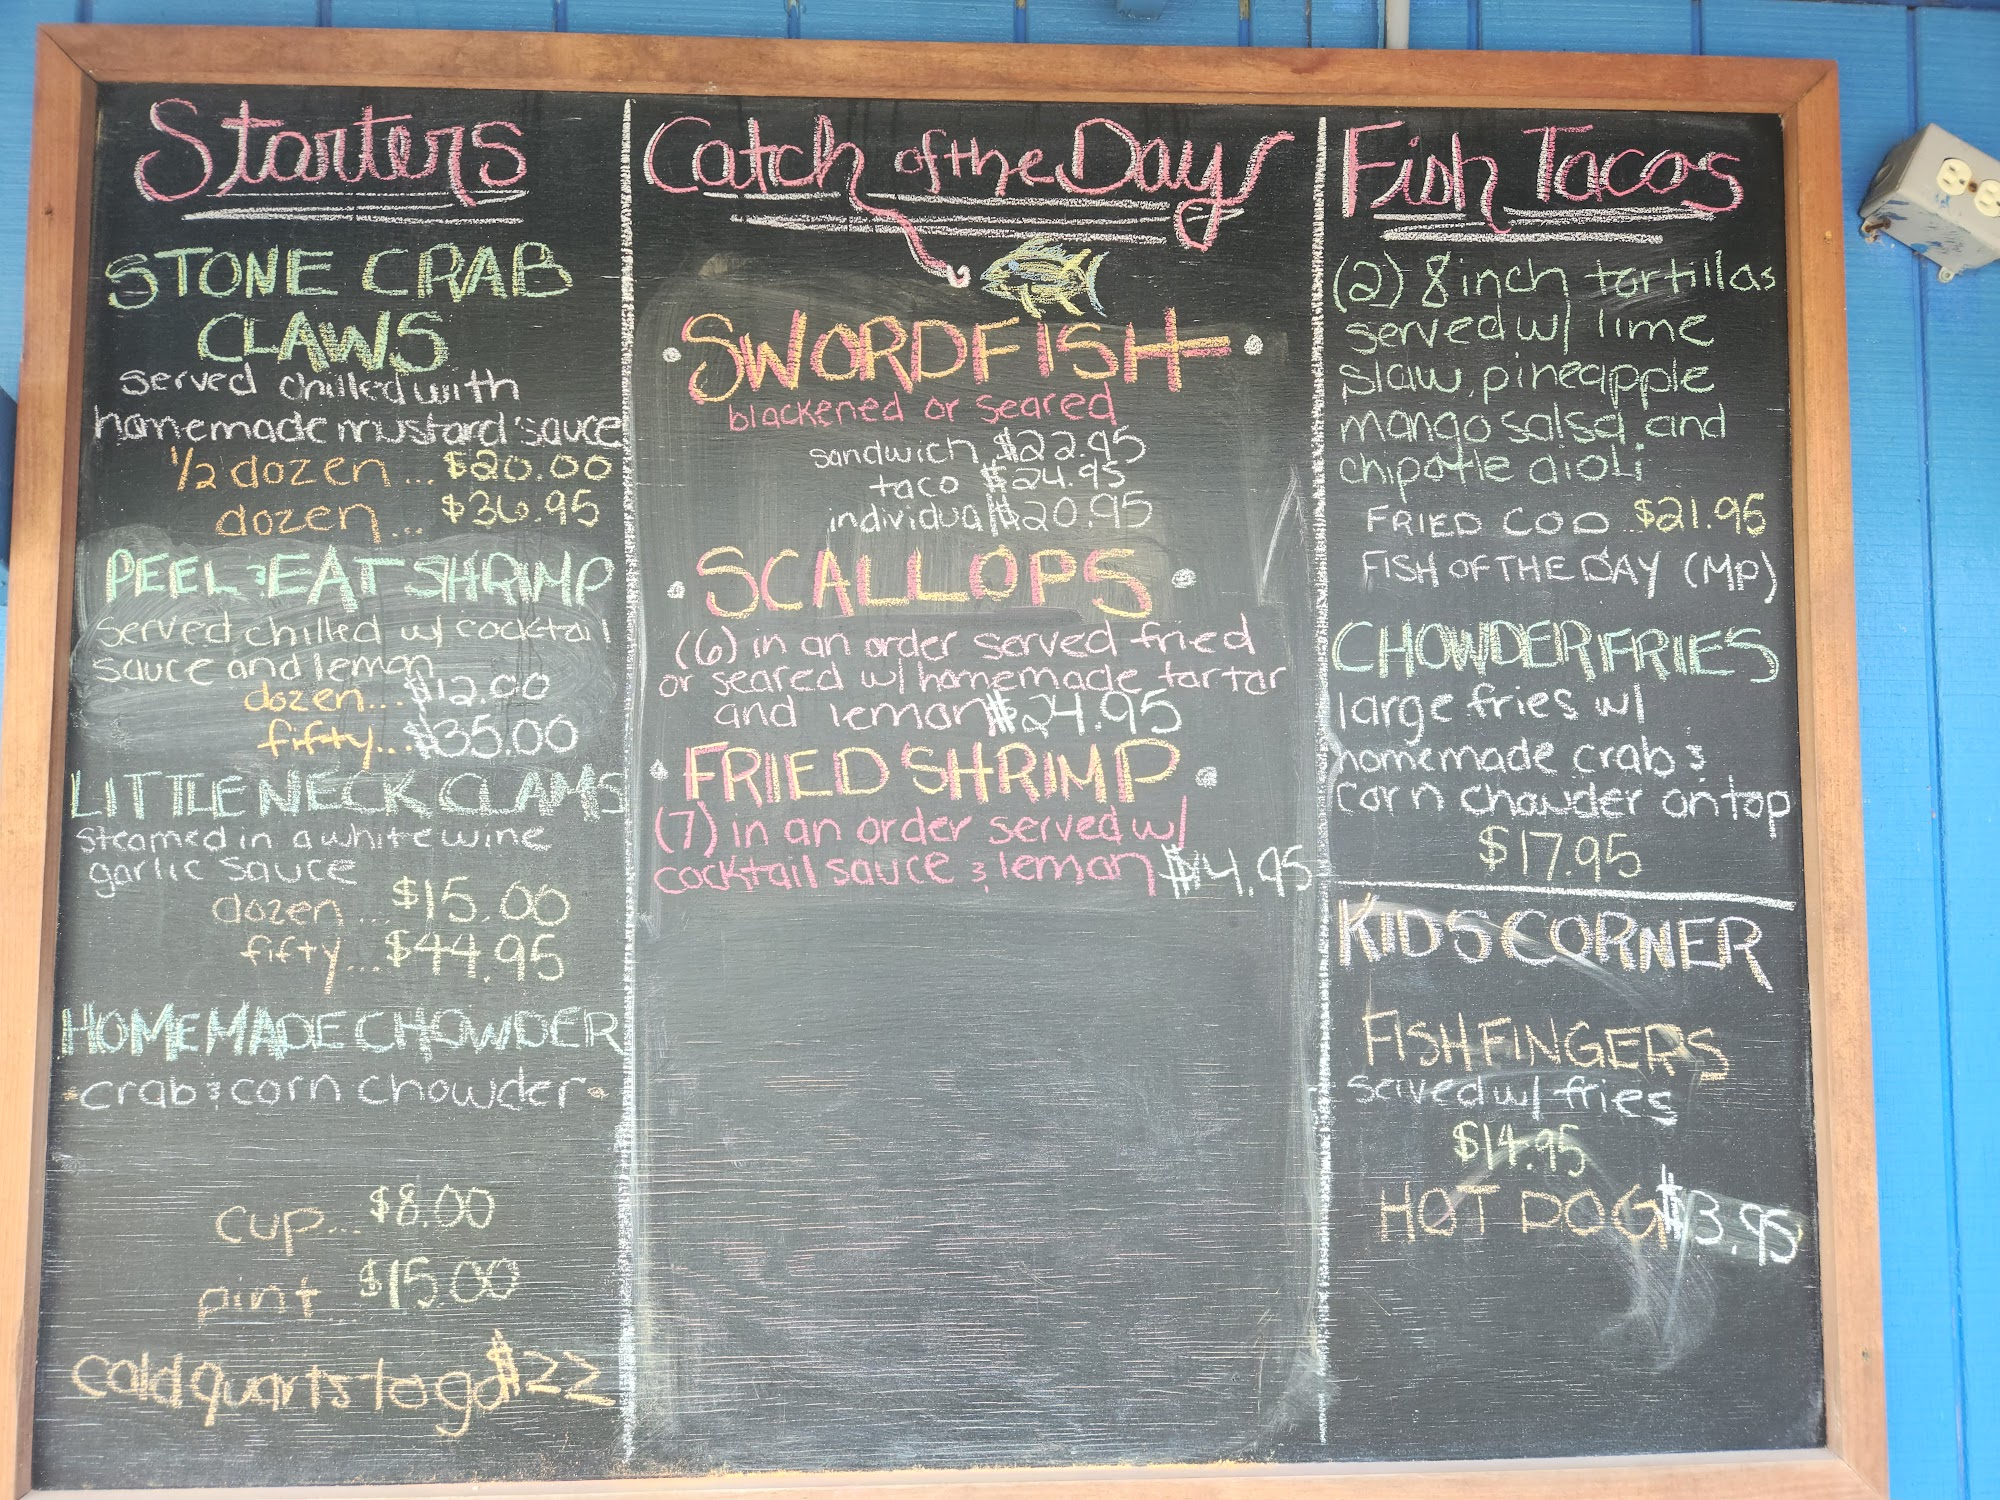 Starters
STONE CRAB
CLAWS
served chilled with
homemade mustard sauce
1/2 dozen... $20.00
dozen... $36.95
PEEL & EAT SHRIMP
served chilled w/ cocktail
sauce and lemon
dozen... $12.00
fifty... $35.00
LITTLE NECK CLAMS
steamed in a white wine
garlic sauce
dozen... $15.00
fifty... $44.95
HOMEMADE CHOWDER
•crab & corn chowder•
cup... $8.00
pint $15.00
cold quarts to go $22
Catch of the Day
•SWORDFISH•
blackened or seared
sandwich $22.95
taco $24.95
individual $20.95
•SCALLOPS•
(6) in an order served fried
or seared w/ homemade tartar
and lemon $24.95
•FRIED SHRIMP•
(7) in an order served w/
cocktail sauce & lemon $14.95
Fish Tacos
(2) 8 inch tortillas
served w/ lime
slaw, pineapple
mango salsa and
chipotle aioli
FRIED COD $21.95
FISH OF THE DAY (MP)
CHOWDER FRIES
large fries w/
homemade crab &
corn chowder on top
$17.95
KIDS CORNER
FISH FINGERS
served w/ fries
$14.95
HOT DOG $3.95